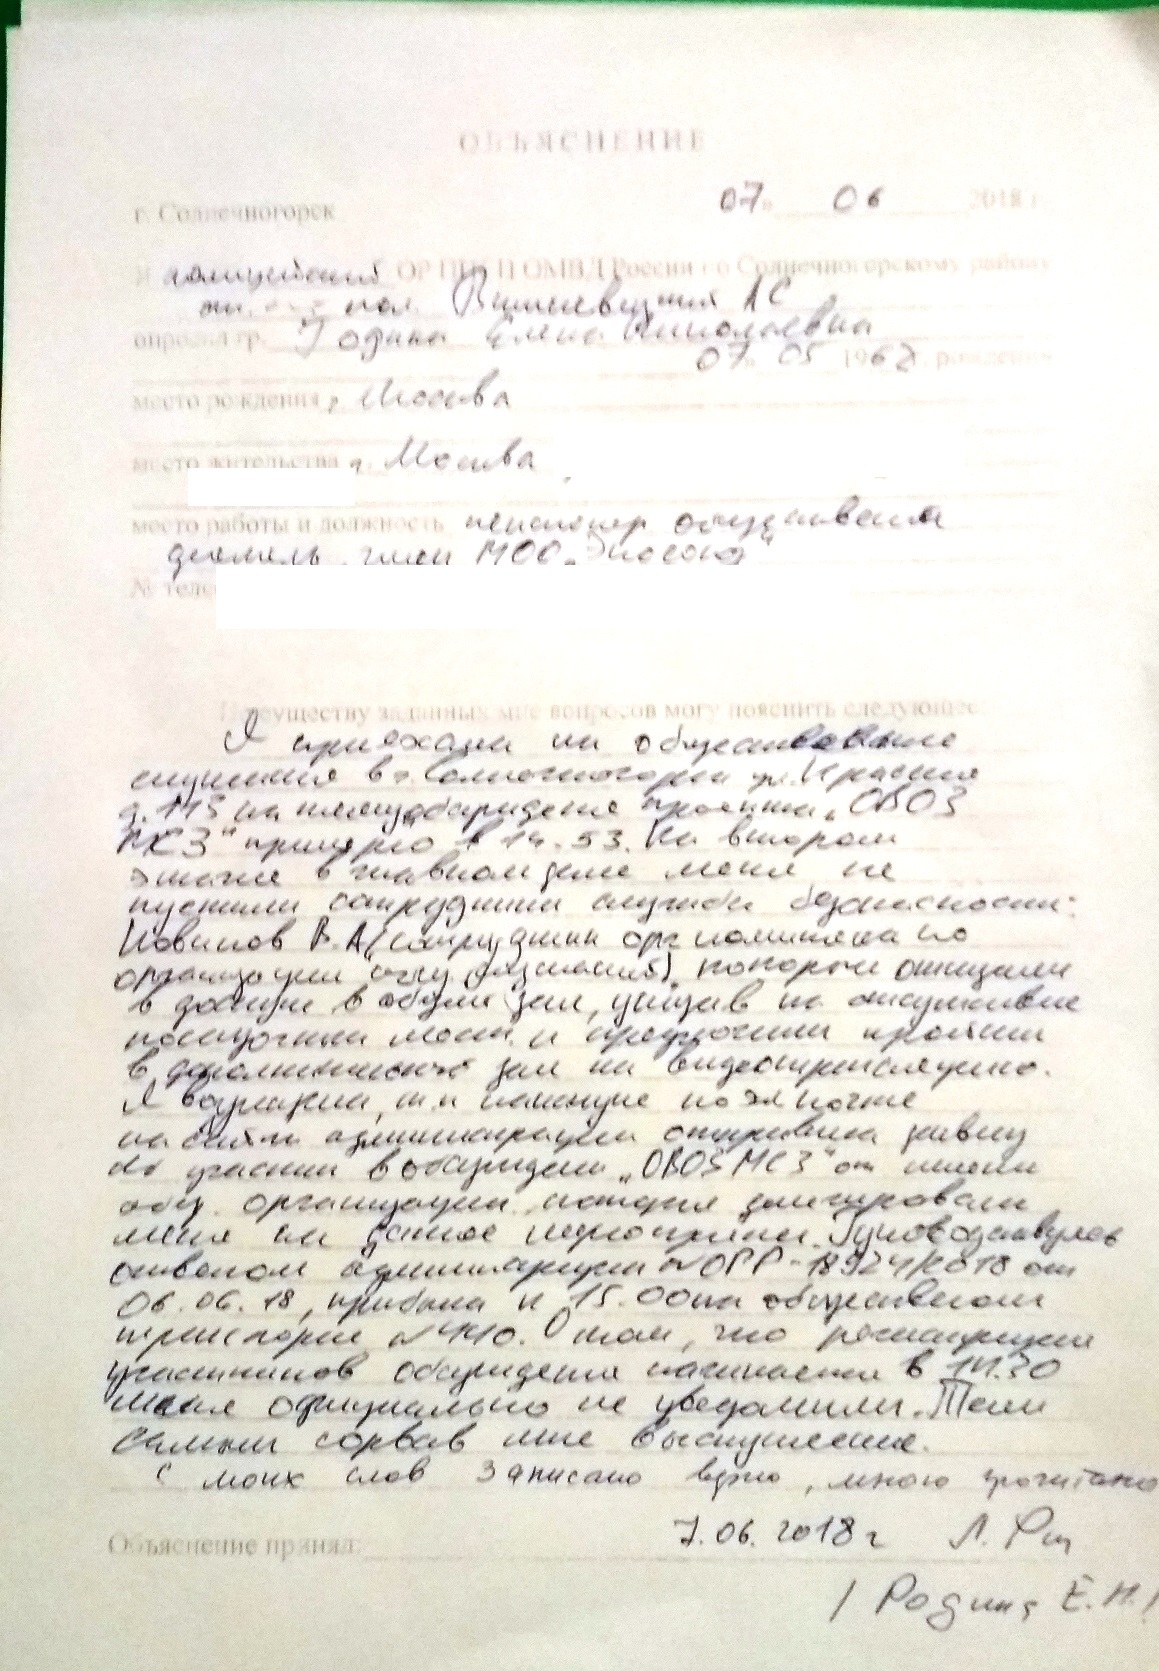 ОБЪЯСНЕНИЕ
г. Солнечногорск 07 06 2018 г.
Я полицейский ОР ППСП ОМВД России по Солнечногорскому району
пол. АС
опросил гр. Родина Елена Николаевна
07 05 196 г. рождения
место рождения г. Москва
место жительства г. Москва
место работы и должность пенсионер общественный
деятель, член МОО „
№ теле
По существу заданных мне вопросов могу пояснить следующее:
Я приехала на общественные
слушания в г. Солнечногорск ул. Красная
д. на обсуждение проекта „ОВОС
примерно в 14.53. На втором
этаже в главном зале меня не
пустили сотрудники службы безопасности:
Новиков В.А (сотрудник орг по
организации , которой отказали
в допуске в общий зал, на отсутствие
посадочных мест, и предложили пройти
в дополнительный зал на видеотрансляцию.
Я , т.к накануне по эл почте
на сайт администрации отправила заявку
об участии в обсуждении „ОВОС “ от имени
общ. организации, которая делегировала
меня на данное мероприятие. Руководствуясь
ответом администрации № ОРГ-18924/2018 от
06.06.18, прибыла к 15.00 на общественном
транспорте № 440. О том, что регистрация
участников обсуждения начинается в 14.30
меня официально не уведомили. Тем
самым сорвав мне выступление.
С моих слов записано верно, мною прочитано
7.06.2018 г
Объяснение принял:
/ Родина Е.Н. /